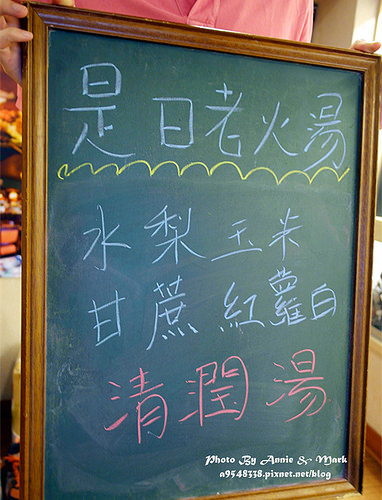 是日老火湯
水梨玉米
甘蔗紅蘿白
清潤湯
Photo By Annie & Mark
a9548338.pixnet.net/blog